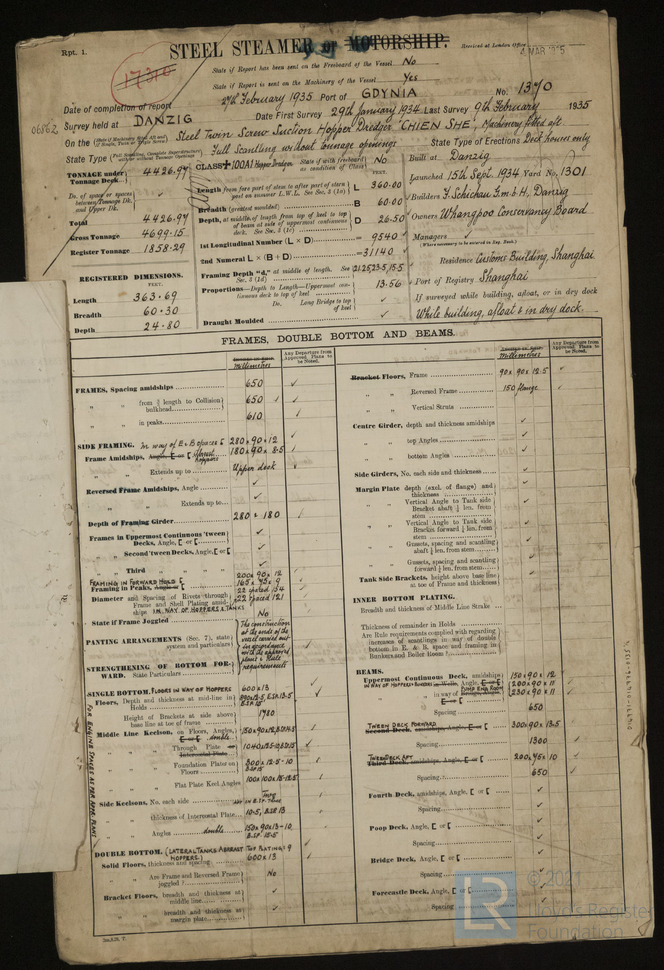 Rpt. 1.
STEEL STEAMER or MOTORSHIP.
Received at London Office
4 MAR 1935
17310
State if Report has been sent on the Freeboard of the Vessel No
State if Report is sent on the Machinery of the Vessel Yes
Date of completion of report 27th February 1935 Port of GDYNIA No. 1370
06862 Survey held at DANZIG Date First Survey 29th January 1934 Last Survey 9th February 1935
On the Steel Twin Screw Suction Hopper Dredger "CHIEN SHE", Machinery fitted aft
State Type Full Scantling without Tonnage openings State Type of Erections Deck houses only
TONNAGE under Tonnage Deck 4426.97
Do. of space or spaces between Tonnage Dk. and Upper Dk.
Total 4426.97
Gross Tonnage 4699.15
Register Tonnage 1858.29
REGISTERED DIMENSIONS.
FEET.
Length 363.69
Breadth 60.30
Depth 24.80
CLASS +100A1 Hopper Dredger State if with freeboard as condition of Class No
FEET.
Length from fore part of stem to after part of stern post on summer L.W.L. See Sec. 3 (1a) L 360.00
Breadth (greatest moulded) B 60.00
Depth, at middle of length from top of keel to top of beam at side of uppermost continuous deck. See Sec. 3 (1c) D 26.50
1st Longitudinal Number (L × D) = 9540
2nd Numeral L × (B + D) = 31140
Framing Depth "d," at middle of length. See Sec. 3 (1d)
Proportions—Depth to Length—Uppermost continuous deck to top of keel 13.56
Do. Long Bridge to top of keel
Draught Moulded
Built at Danzig
Launched 15th Sept. 1934 Yard No. 1301
Builders F. Schichau G.m.b.H, Danzig
Owners Whangpoo Conservancy Board
Managers
(Where necessary to be entered in Reg. Book.)
Residence Customs Building, Shanghai
Port of Registry Shanghai
If surveyed while building, afloat, or in dry dock
While building, afloat & in dry dock.
FRAMES, DOUBLE BOTTOM AND BEAMS.
Millimetres
Any Departure from Approved Plans to be Noted.
FRAMES, Spacing amidships 650
" " from ⅗ length to Collision bulkhead 650
" " in peaks 610
SIDE FRAMING. In way of E & B spaces 280×90×12
Frame Amidships, Angle, [ or [ 180×90×8.5
" " Extends up to Upper deck
Reversed Frame Amidships, Angle
" " Extends up to
Depth of Framing Girder 280 & 180
Frames in Uppermost Continuous 'tween Decks, Angle, [ or [
" Second 'tween Decks, Angle, [ or [
" Third " "
FRAMING IN FORWARD HOLD 200×90×12
Framing in Peaks, Angle or [ 165×75×9
Diameter and Spacing of Rivets through Frame and Shell Plating amidships 22 spaced 154
IN WAY OF HOPPERS & TANKS 22 spaced 121
State if Frame Joggled No
PANTING ARRANGEMENTS (Sec. 7), state system and particulars
The construction at the ends of the vessel carried out in accordance with the approved plans & Rule requirements
STRENGTHENING OF BOTTOM FORWARD. State Particulars
SINGLE BOTTOM, FLOORS IN WAY OF HOPPERS 600×13
Floors, Depth and thickness at mid-line in Holds
Height of Brackets at side above base line at toe of frame 1780
Middle Line Keelson, on Floors, Angles, [ or [ double
" " Through Plate or Intercostal Plate
" " Foundation Plates on Floors
" " Flat Plate Keel Angles
Side Keelsons, No. each side Two
" " thickness of Intercostal Plate 10.5, B.SP 13
" " Angles double 150×90×13-10
DOUBLE BOTTOM, (LATERAL TANKS ABREAST HOPPERS) TOP PLATING: 9
Solid Floors, thickness and spacing 600×13
" " Are Frame and Reversed Frame joggled? No
Bracket Floors, breadth and thickness at middle line
" " breadth and thickness at margin plate
FOR ENGINE SPACES AS PER APPR. PLANS
2m.8.28. T.
Millimetres
Any Departure from Approved Plans to be Noted.
Bracket Floors, Frame 90×90×12.5
" " Reversed Frame 150 flange
" " Vertical Struts
Centre Girder, depth and thickness amidships
" " top Angles
" " bottom Angles
Side Girders, No. each side and thickness
Margin Plate depth (excl. of flange) and thickness
" " Vertical Angle to Tank side Bracket abaft ¼ len. from stem
" " Vertical Angle to Tank side Bracket forward ¼ len. from stem
" " Gussets, spacing and scantling abaft ¼ len. from stem
" " Gussets, spacing and scantling forward ¼ len. from stem
Tank Side Brackets, height above base line at toe of Frame and thickness
INNER BOTTOM PLATING.
Breadth and thickness of Middle Line Strake
Thickness of remainder in Holds
Are Rule requirements complied with regarding increases of scantlings in way of double bottom in E. & B. space and framing in Bunkers and Boiler Room?
BEAMS.
Uppermost Continuous Deck, amidships 150×90×12
IN WAY OF HOPPERS & BUNKERS 200×90×11
" " in way of PUMP ENG ROOM 230×90×11
Spacing 650
TWEEN DECK FORWARD 300×90×13.5
Second Deck, amidships, Angle, [ or [
Spacing 1300
TWEEN DECK AFT 200×75×10
Third Deck, amidships, Angle, [ or [
Spacing 650
Fourth Deck, amidships, Angle, [ or [
Spacing
Poop Deck, Angle, [ or [
Spacing
Bridge Deck, Angle, [ or [
Spacing
Forecastle Deck, Angle, [ or [
Spacing
© 2021
LR Lloyd's Register
Foundation